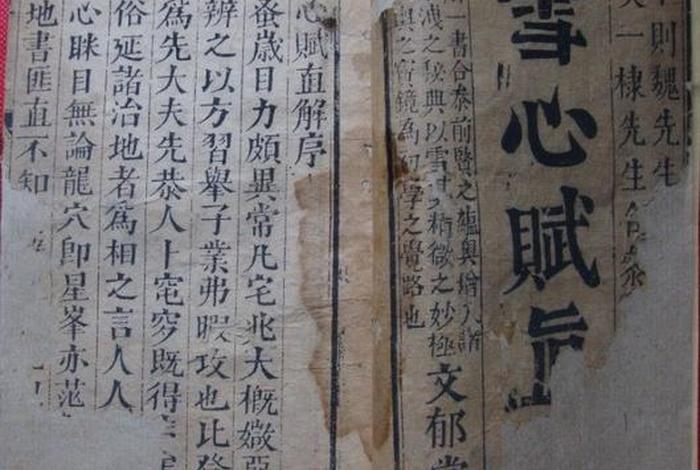 則魏先生
一棣先生
雪心賦
一書合泰前賢之蘊奧
洩之秘典以雪 精微之妙極
之寶鏡為初學之覺路也
文郁堂
心賦直解序
蚤歲目力頗異常凡宅兆大概媺惡
辨之以方習舉子業弗暇攻也比登
為先大夫先恭人卜窀穸既得
俗延諸治地者為相之言人人
心眯目無論龍穴卽星峯亦茫
地書匪直不知